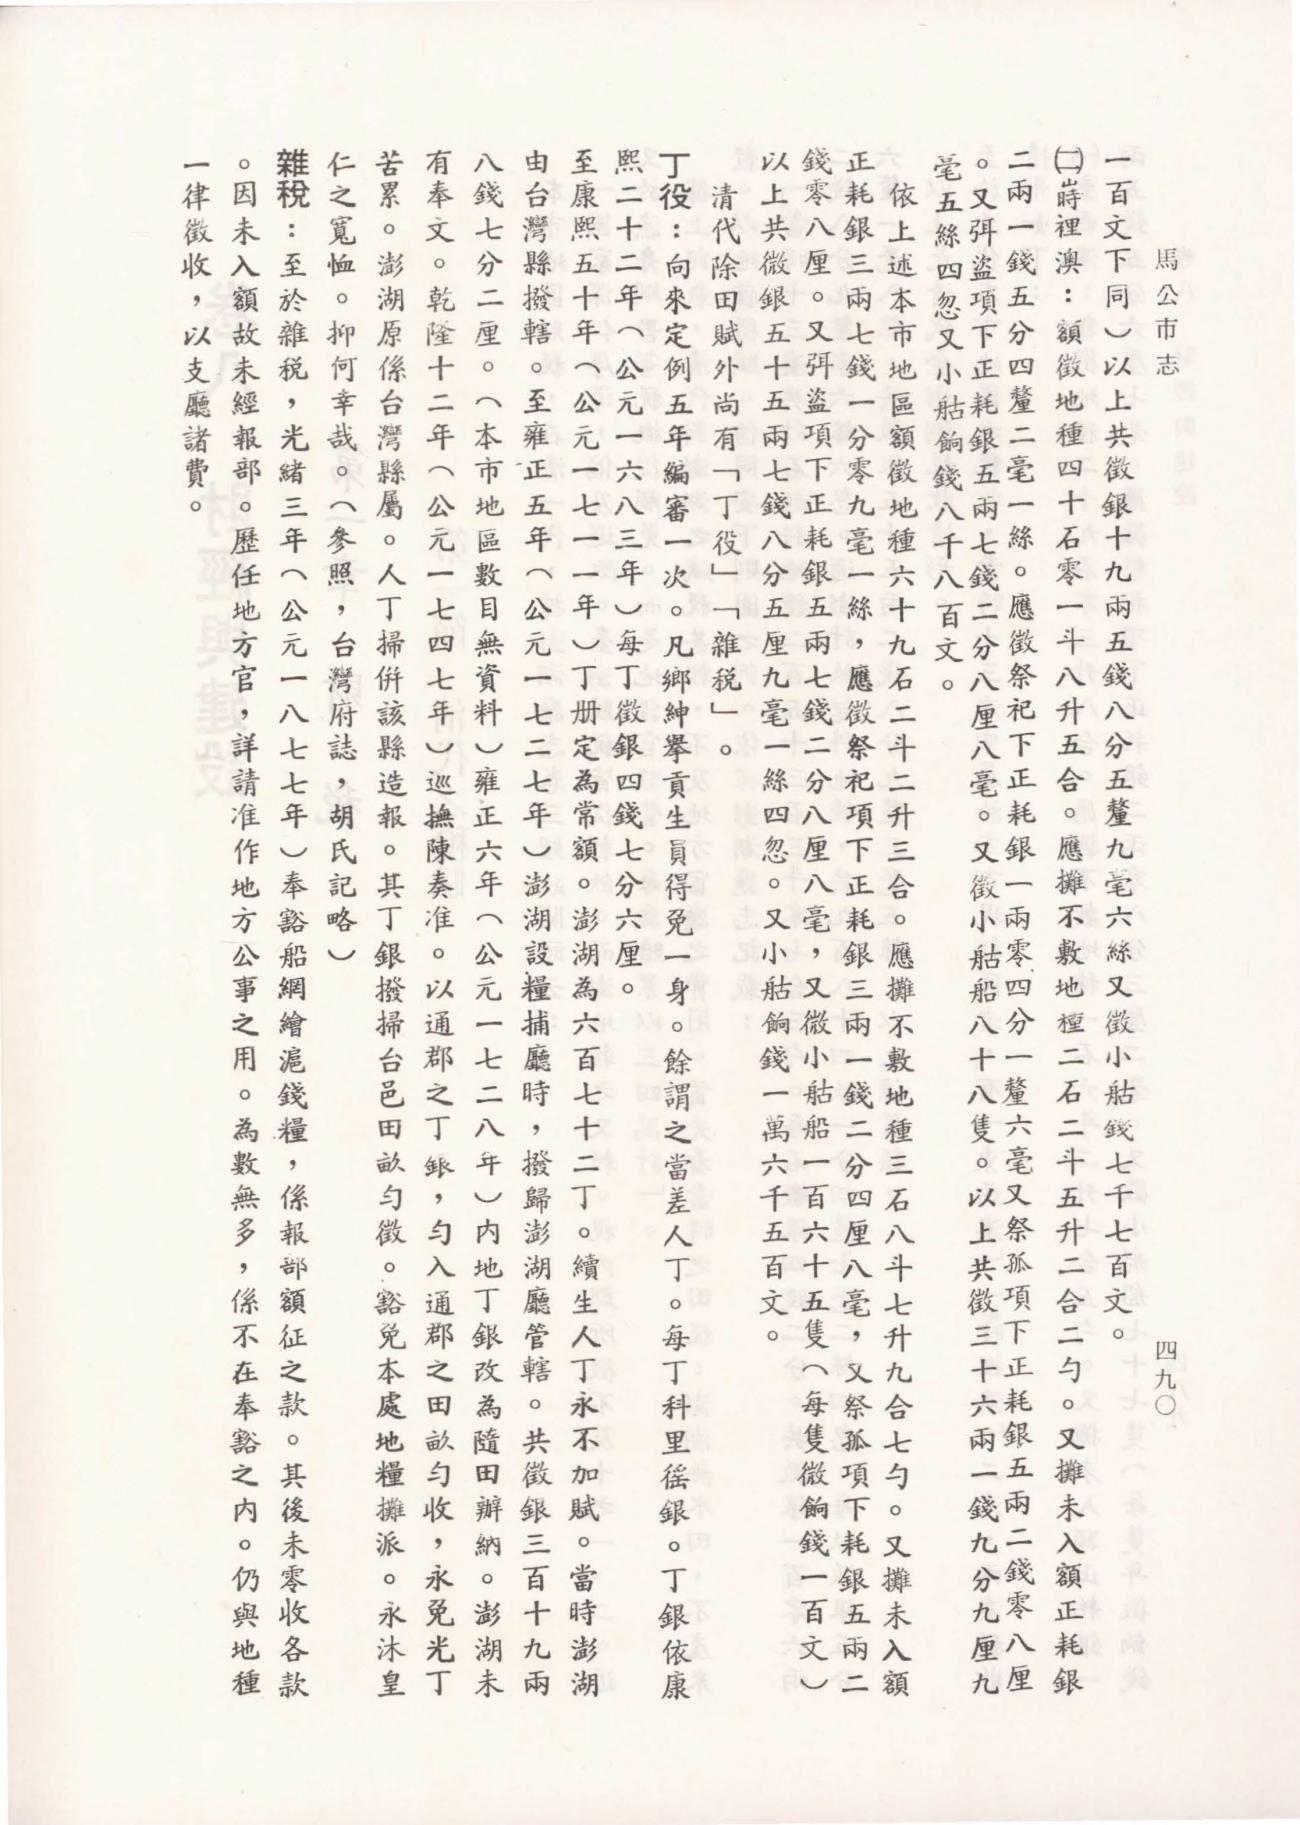 馬公市志
四九〇
一百文下同）以上共徵銀十九兩五錢八分五釐九毫六絲又徵小舢錢七千七百文。
㈡嵵裡澳：額徵地種四十石零一斗八升五合。應攤不敷地種二石二斗五升二合二勺。又攤未入額正耗銀
二兩一錢五分四釐二毫一絲。應徵祭祀下正耗銀一兩零四分一釐六毫又祭孤項下正耗銀五兩二錢零八厘
。又弭盜項下正耗銀五兩七錢二分八厘八毫。又徵小舢船八十八隻。以上共徵三十六兩一錢九分九厘九
毫五絲四忽又小舢餉錢八千八百文。
依上述本市地區額徵地種六十九石二斗二升三合。應攤不敷地種三石八斗七升九合七勺。又攤未入額
正耗銀三兩七錢一分零九毫一絲，應徵祭祀項下正耗銀三兩一錢二分四厘八毫，又祭孤項下耗銀五兩二
錢零八厘。又弭盜項下正耗銀五兩七錢二分八厘八毫，又微小舢船一百六十五隻（每隻微餉錢一百文）
以上共微銀五十五兩七錢八分五厘九毫一絲四忽。又小舢餉錢一萬六千五百文。
清代除田賦外尚有「丁役」「雜税」。
丁役：向來定例五年編審一次。凡鄉紳舉貢生員得免一身。餘謂之當差人丁。每丁科里徭銀。丁銀依康
熙二十二年（公元一六八三年）每丁徵銀四錢七分六厘。
至康熙五十年（公元一七一一年）丁册定為常額。澎湖為六百七十二丁。續生人丁永不加賦。當時澎湖
由台灣縣撥轄。至雍正五年（公元一七二七年）澎湖設糧捕廳時，撥歸澎湖廳管轄。共徵銀三百十九兩
八錢七分二厘。（本市地區數目無資料）雍正六年（公元一七二八年）内地丁銀改為隨田辦納。澎湖未
有奉文。乾隆十二年（公元一七四七年）巡撫陳奏准。以通郡之丁銀，勻入通郡之田畝勻收，永免光丁
苦累。澎湖原係台灣縣屬。人丁掃併該縣造報。其丁銀撥掃台邑田畝勻徵。豁免本處地糧攤派。永沐皇
仁之寬恤。抑何幸哉。（參照，台灣府誌，胡氏記略）
雜稅：至於雜税，光緒三年（公元一八七七年）奉豁船網繒滬錢糧，係報部額征之款。其後未零收各款
。因未入額故未經報部。歷任地方官，詳請准作地方公事之用。為數無多，係不在奉豁之内。仍與地種
一律徵收，以支廳諸費。